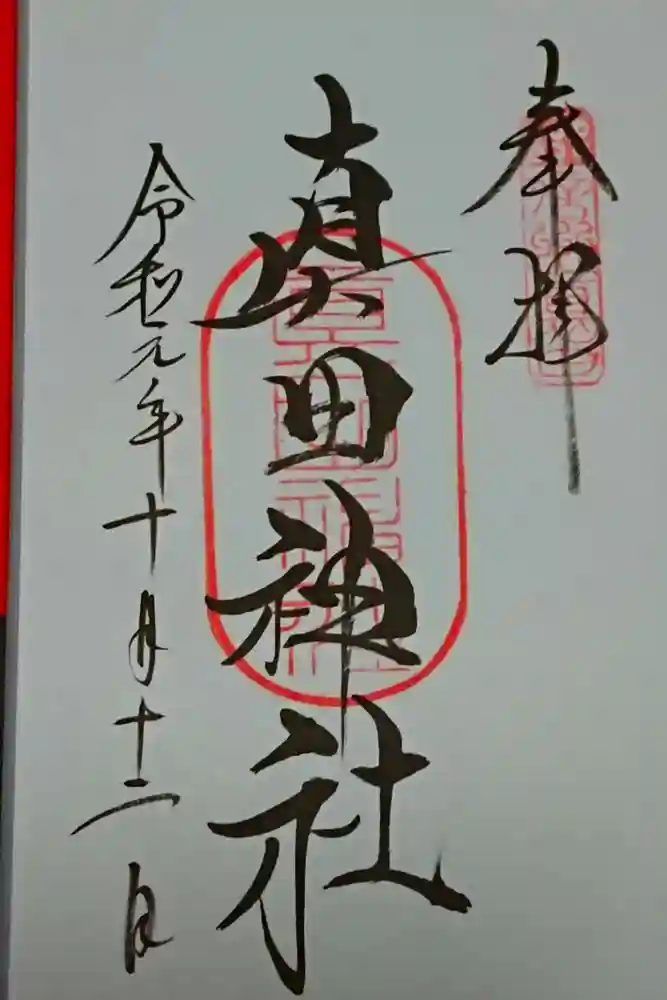 奉拝
眞田神社
令和元年十月十二日